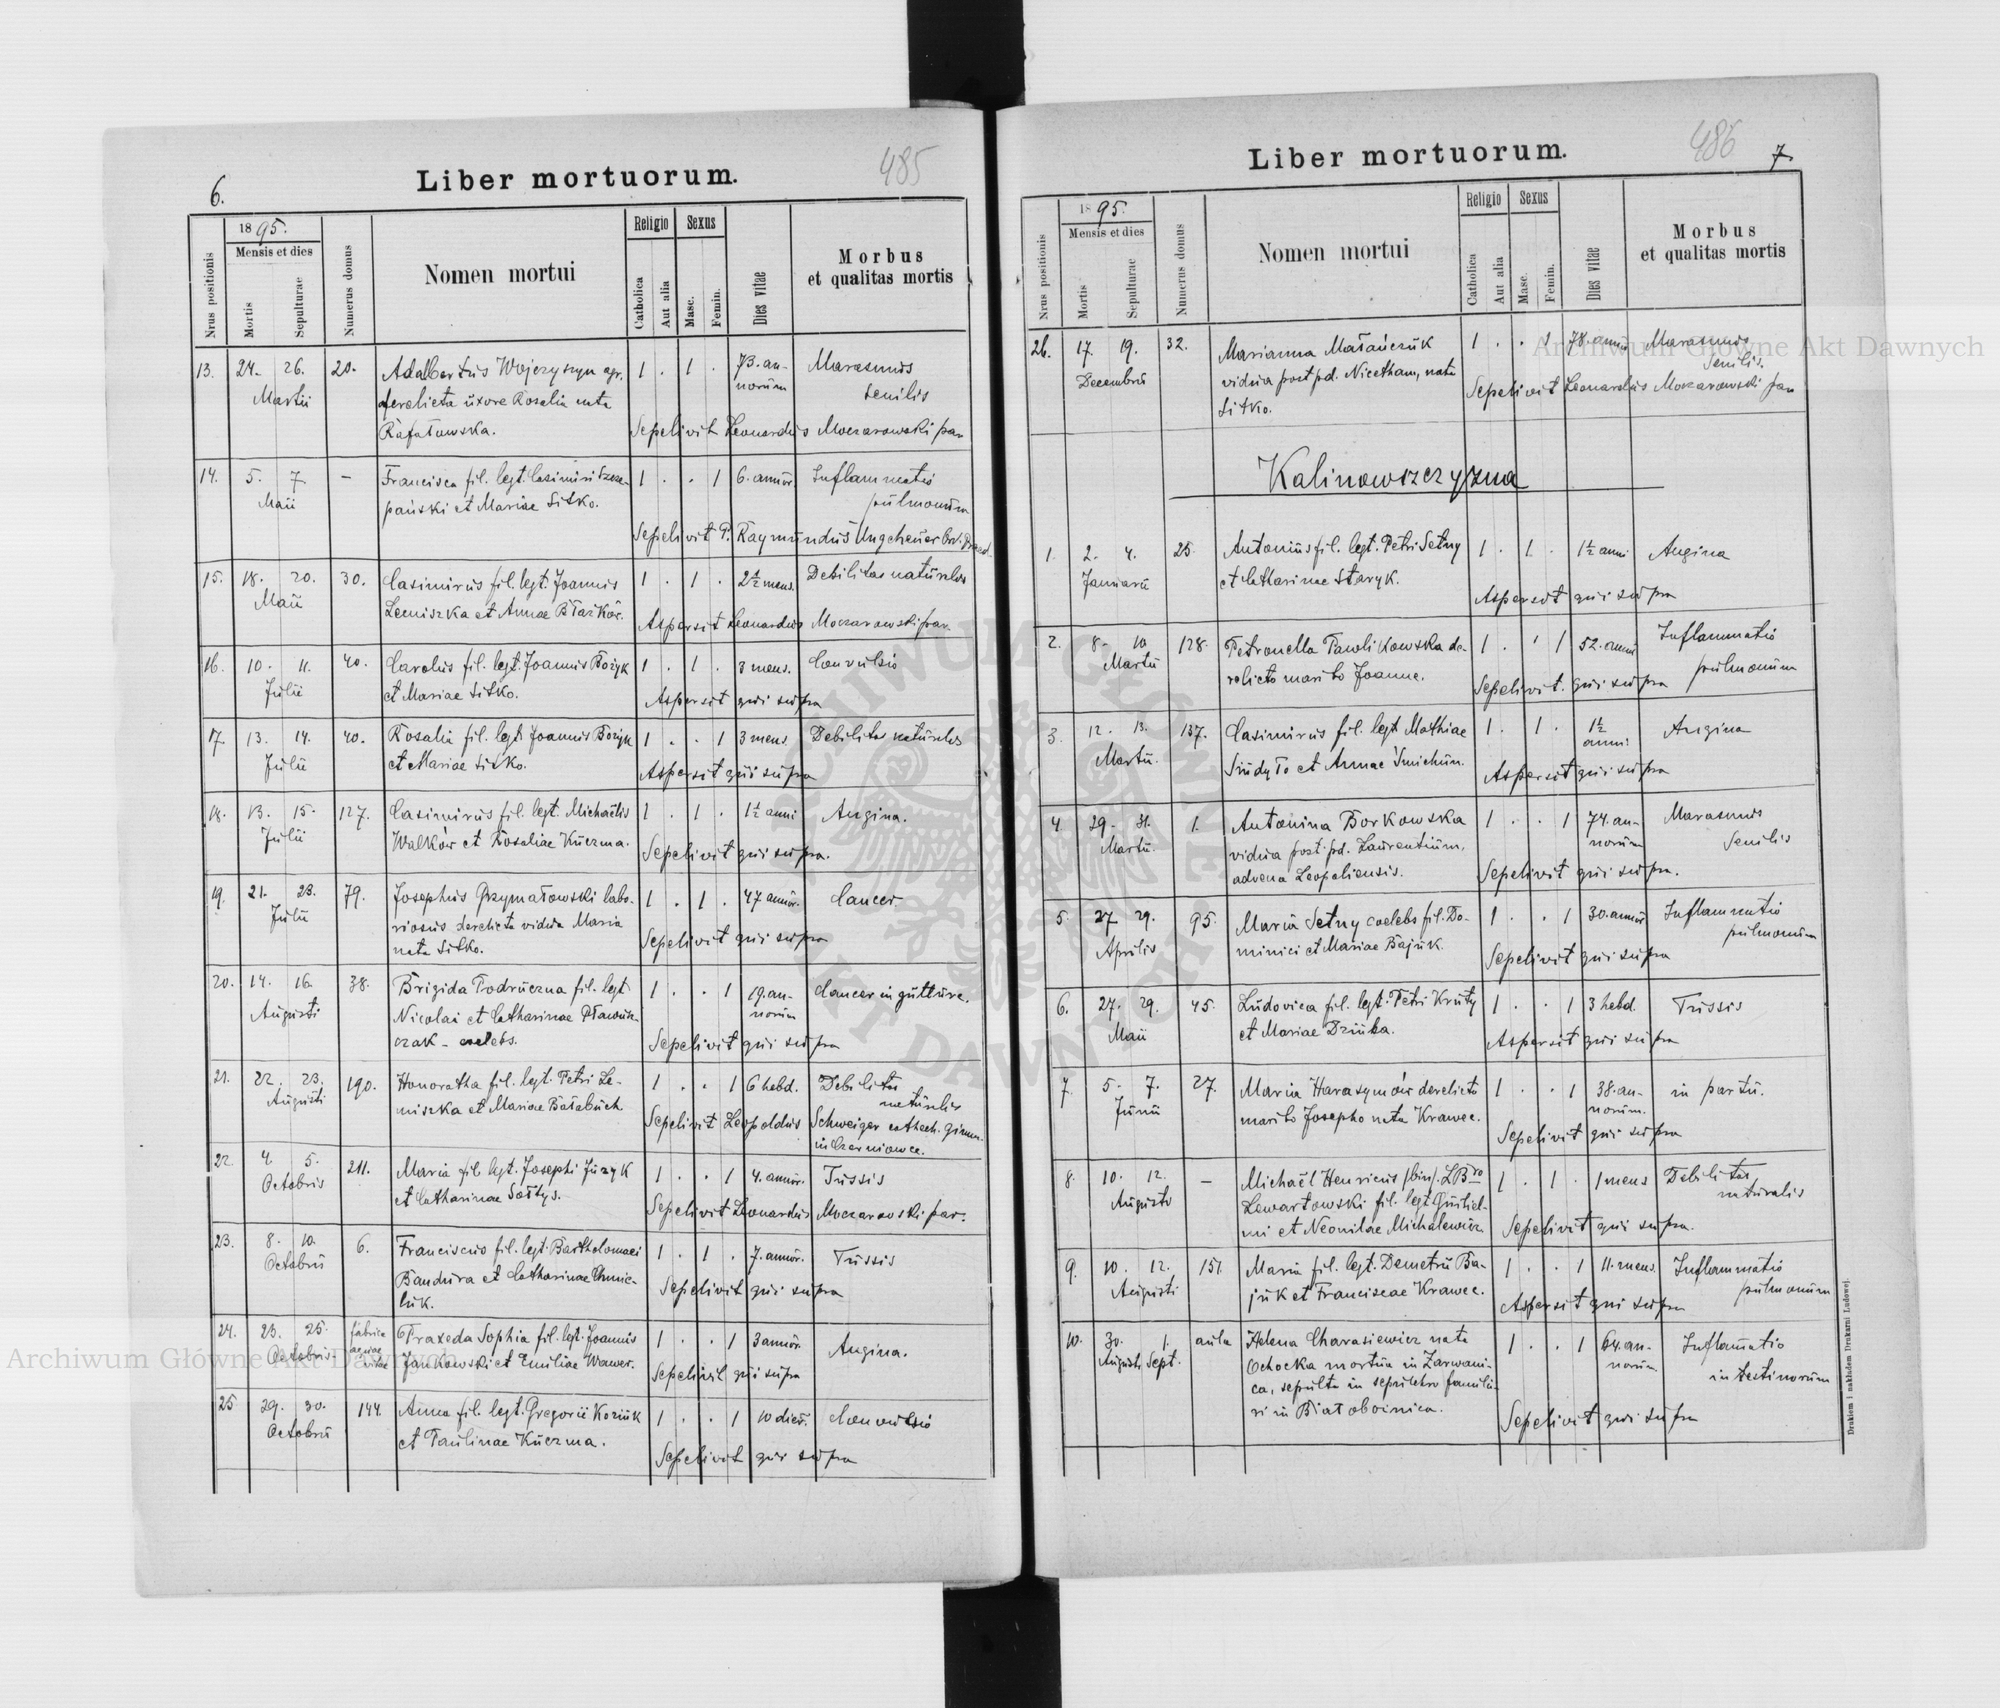 6.
Liber mortuorum.
485
Nrus positionis
1895.
Mensis et dies
Mortis
Sepulturae
Numerus domus
Nomen mortui
Religio
Catholica
Aut alia
Sexus
Masc.
Femin.
Dies vitae
Morbus
et qualitas mortis
13. 24. 26. 20. Adalbertus Wojczyszyn agr. 1 . 1 . 73. an- Marasmus
Martii derelicta uxore Rosalia nata norum senilis
Rafałowska. Sepelivit Leonardus Moczarowski par.
14. 5. 7. — Francisca fil. legt. Casimiri Szcze- 1 . . 1 6. annor. Inflammatio
Maii pański et Mariae Sitko. pulmonum
Sepelivit P. Raymundus Ungeheuer Ord. Praed.
15. 18. 20. 30. Casimirus fil. legt. Joannis 1 . 1 . 2½ mens. Debilitas naturalis
Maii Lemiszka et Annae Błażków. Aspersit Leonardus Moczarowski par.
16. 10. 11. 40. Carolus fil. legt. Joannis Bożyk 1 . 1 . 3 mens. Convulsio
Julii et Mariae Sitko. Aspersit qui supra
17. 13. 14. 40. Rosalia fil. legt. Joannis Bożyk 1 . . 1 3 mens. Debilitas naturalis
Julii et Mariae Sitko. Aspersit qui supra
18. 13. 15. 127. Casimirus fil. legt. Michaëlis 1 . 1 . 1½ anni Angina.
Julii Walków et Rosaliae Kuczma. Sepelivit qui supra.
19. 21. 23. 79. Josephus Grzymałowski labo- 1 . 1 . 47 annor. Cancer
Julii riosus derelicta vidua Maria
nata Sitko. Sepelivit qui supra
20. 14. 16. 38. Brigida Podruczna fil. legt. 1 . . 1 19. an- Cancer in gutture.
Augusti Nicolai et Catharinae norum
czak - coelebs. Sepelivit qui supra
21. 22. 23. 190. Honoratha fil. legt. Petri Le- 1 . . 1 6 hebd. Debilitas
Augusti miszka et Mariae Bałabuch naturalis
Sepelivit Leopoldus Schweiger cathech. gimn.
in Czerniowce.
22. 4. 5. 211. Maria fil. legt. Josephi Juzyk 1 . . 1 4. annor. Tussis
Octobris et Catharinae Sołtys. Sepelivit Leonardus Moczarowski par.
23. 8. 10. 6. Franciscus fil. legt. Bartholomaei 1 . 1 . 7. annor. Tussis
Octobris Bandura et Catharinae Chmie-
luk. Sepelivit qui supra
24. 23. 25. fabrica Praxeda Sophia fil. legt. Joannis 1 . . 1 3 annor. Angina.
Octobris aquae vitae Jankowski et Emiliae Wawer. Sepelivit qui supra
25. 29. 30. 144. Anna fil. legt. Gregorii Koziuk 1 . . 1 10 dier. Convulsio
Octobris et Paulinae Kuczma. Sepelivit qui supra
Liber mortuorum.
486
7.
Nrus positionis
1895.
Mensis et dies
Mortis
Sepulturae
Numerus domus
Nomen mortui
Religio
Catholica
Aut alia
Sexus
Masc.
Femin.
Dies vitae
Morbus
et qualitas mortis
26. 17. 19. 32. Marianna Matańczuk 1 . . 1 78. annor. Marasmus
Decembris vidua post pd. Nicetham, nata senilis.
Sitko. Sepelivit Leonardus Moczarowski par.
Kalinowszczyzna
1. 2. 4. 25. Antonius fil. legt. Petri Setny 1 . 1 . 1½ anni Angina
Januarii et Catharinae Staryk. Aspersit qui supra
2. 8. 10. 128. Petronella Pawlikowska de- 1 . . 1 52. annor. Inflammatio
Martii relicto marito Joanne. pulmonum
Sepelivit. qui supra
3. 12. 13. 137. Casimirus fil. legt Mathiae 1 . 1 . 1½ Angina
Martii. et Annae anni
Aspersit qui supra
4. 29. 31. 1. Antonina Borkowska 1 . . 1 74. an- Marasmus
Martii. vidua post. pd. Laurentium, norum senilis
advena Leopoliensis. Sepelivit qui supra.
5. 27 29. 95. Maria Setny coelebs fil. Do- 1 . . 1 30. annor Inflammatio
Aprilis minici et Mariae Bajuk. pulmonum
Sepelivit qui supra
6. 27. 29. 45. Ludovica fil. legt. Petri Kruty 1 . . 1 3 hebd. Tussis
Maii et Mariae Dziuba. Aspersit qui supra
7. 5. 7. 27. Maria Harasymów derelicto 1 . . 1 38. an- in partu.
Junii marito Josepho nata Krawec. norum.
Sepelivit qui supra
8. 10. 12. — Michaël Henricus (bin). L.Bro 1 . 1 . 1 mens Debilitas
Augusti Lewartowski fil. legt Guiliel- naturalis
mi et Neonilae Michalewicz Sepelivit qui supra.
9. 10. 12. 151. Maria fil. legt. Demetrii Ba- 1 . . 1 11. mens. Inflammatio
Augusti juk et Franciscae Krawec. pulmonum
Aspersit qui supra
10. 30. 1. aula Helena Charasiewicz nata 1 . . 1 64. an- Inflamatio
Augusti Sept. Ochocka mortua in Zarwani- norum intestinorum
ca, sepulta in sepulchro familia-
ri in Białobożnica. Sepelivit qui supra
Drukiem i nakładem Drukarni Ludowej.
Archiwum Główne Akt Dawnych
Archiwum Główne Akt Dawnych
ARCHIWUM GŁÓWNE • AKT DAWNYCH •